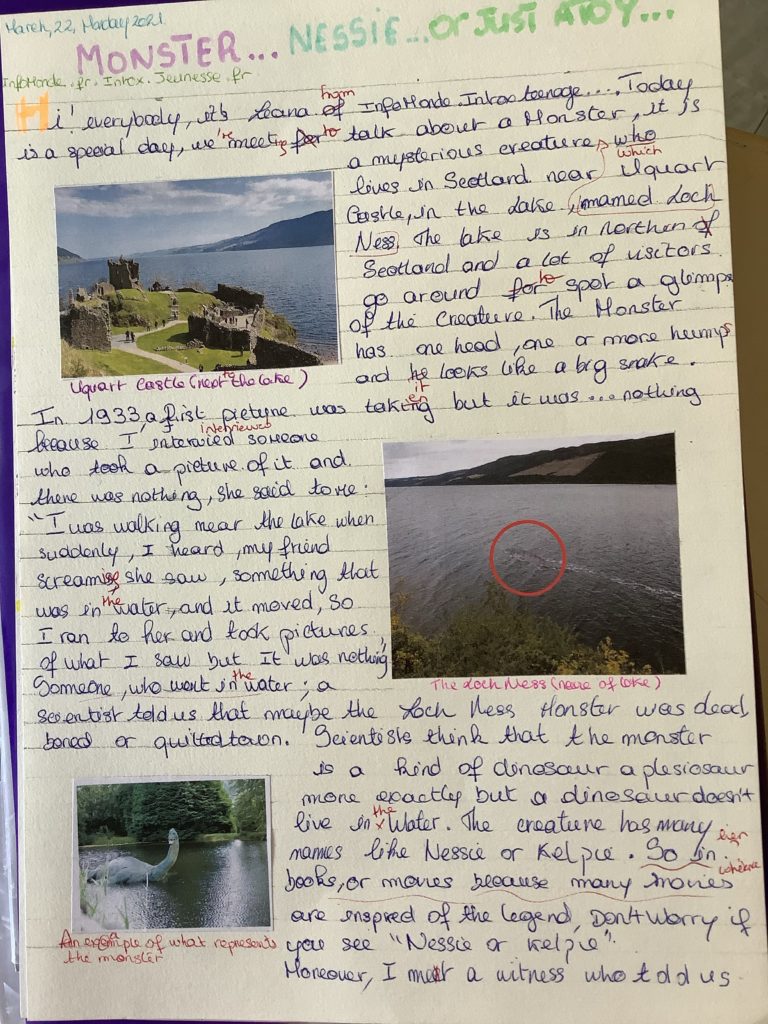 March, 22, Monday 2021
MONSTER... NESSIE... OR JUST A TOY...
InfoMonde.fr. Intox. Jeunesse.fr
Hi! everybody, it's Leana of from InfoMonde.Intox teenage.... Today
is a special day, we're meeting for to talk about a Monster, it is
a mysterious creature, who which
lives in Scotland near Uquart
Castle, in the Lake, named Loch
Ness. The lake is in northen of
Scotland and a lot of visitors
go around for to spot a glimps
of the Creature. The Monster
has one head, one or more humps
and he it looks like a big snake.
Uquart Castle (next to the lake)
In 1933, a first picture was taking en but it was... nothing
because I intervied interviewed someone
who took a picture of it and
there was nothing, she said to me:
"I was walking near the lake when
suddenly, I heard, my friend
screaming she saw, something that
was in the water, and it moved, so
I ran to her and took pictures
of what I saw but It was nothing"
Someone, who went in the water; a
The Loch Ness (name of lake)
scientist told us that maybe the Loch Ness Monster was dead,
bored or quitted town. Scientists think that the monster
is a kind of dinosaur a plesiosaur
more exactly but a dinosaur doesn't
live in the Water. The creature has many
names like Nessie or Kelpie. So in
books, or movies because many movies
are inspred of the legend, Don't worry if
you see "Nessie or Kelpie".
Moreover, I met a witness who told us
An example of what represents
the monster